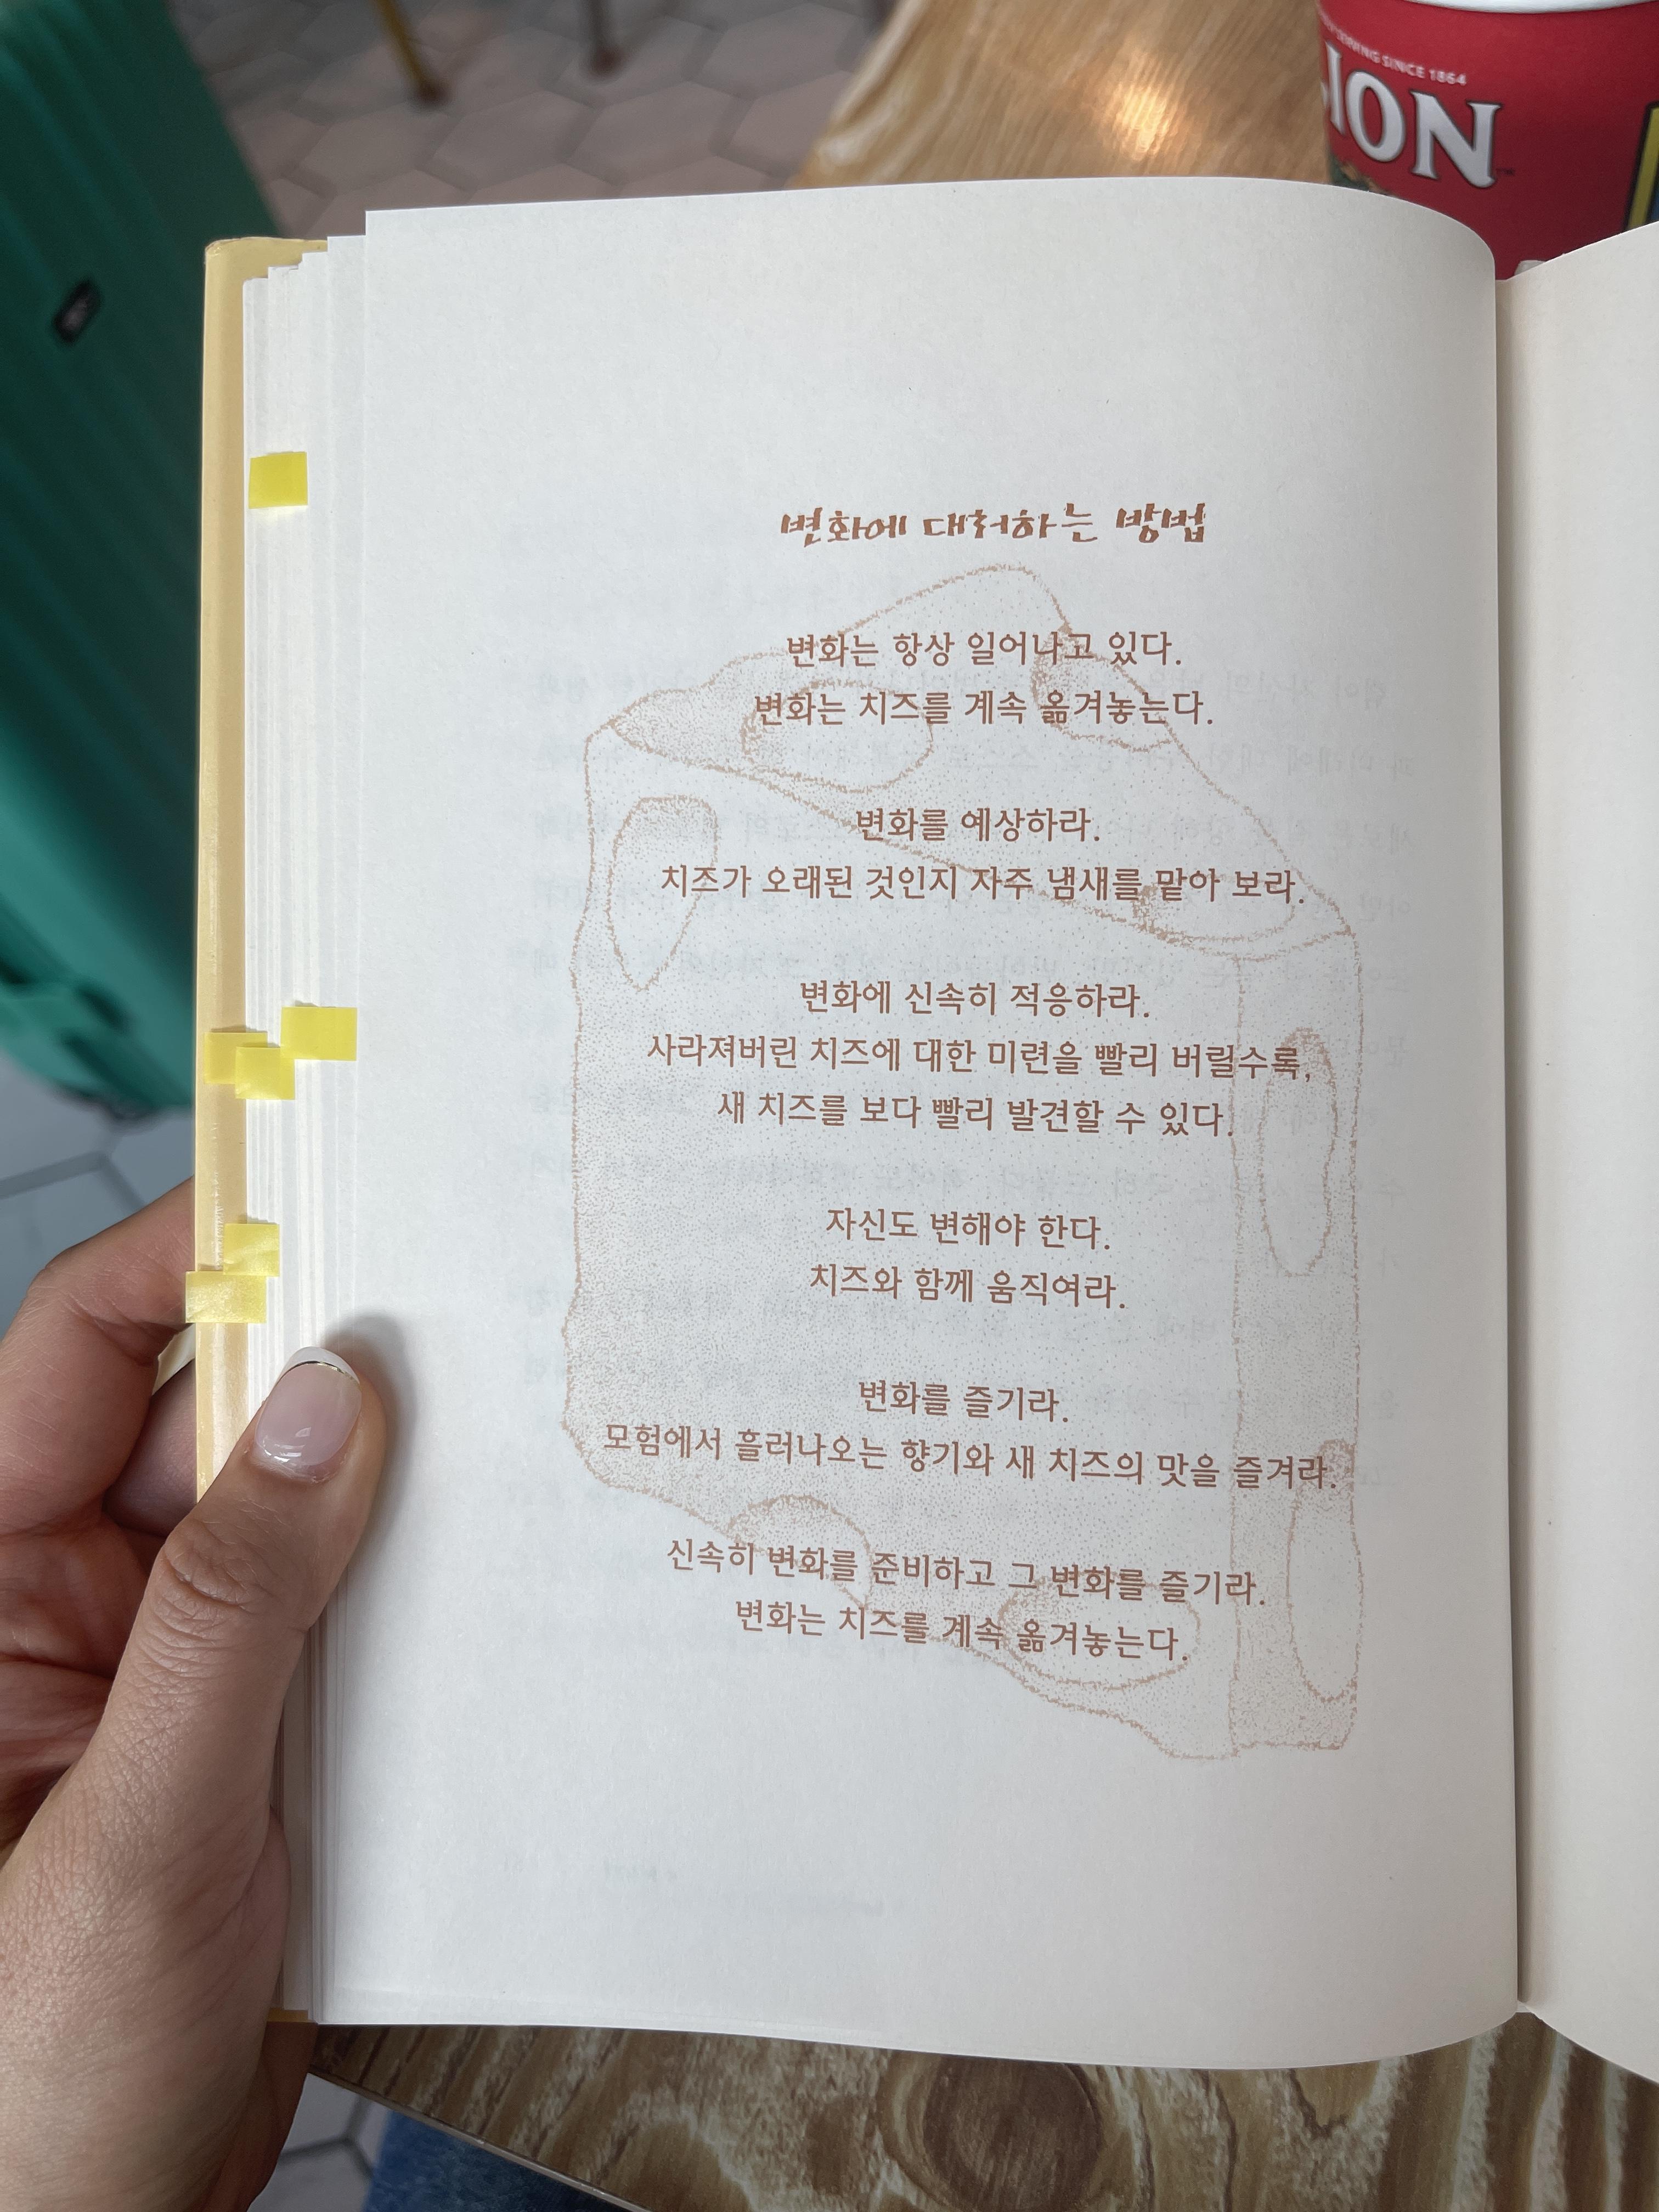 SERVING SINCE 1864
ION
변화에 대처하는 방법
변화는 항상 일어나고 있다.
변화는 치즈를 계속 옮겨놓는다.
변화를 예상하라.
치즈가 오래된 것인지 자주 냄새를 맡아 보라.
변화에 신속히 적응하라.
사라져버린 치즈에 대한 미련을 빨리 버릴수록,
새 치즈를 보다 빨리 발견할 수 있다.
자신도 변해야 한다.
치즈와 함께 움직여라.
변화를 즐기라.
모험에서 흘러나오는 향기와 새 치즈의 맛을 즐겨라.
신속히 변화를 준비하고 그 변화를 즐기라.
변화는 치즈를 계속 옮겨놓는다.